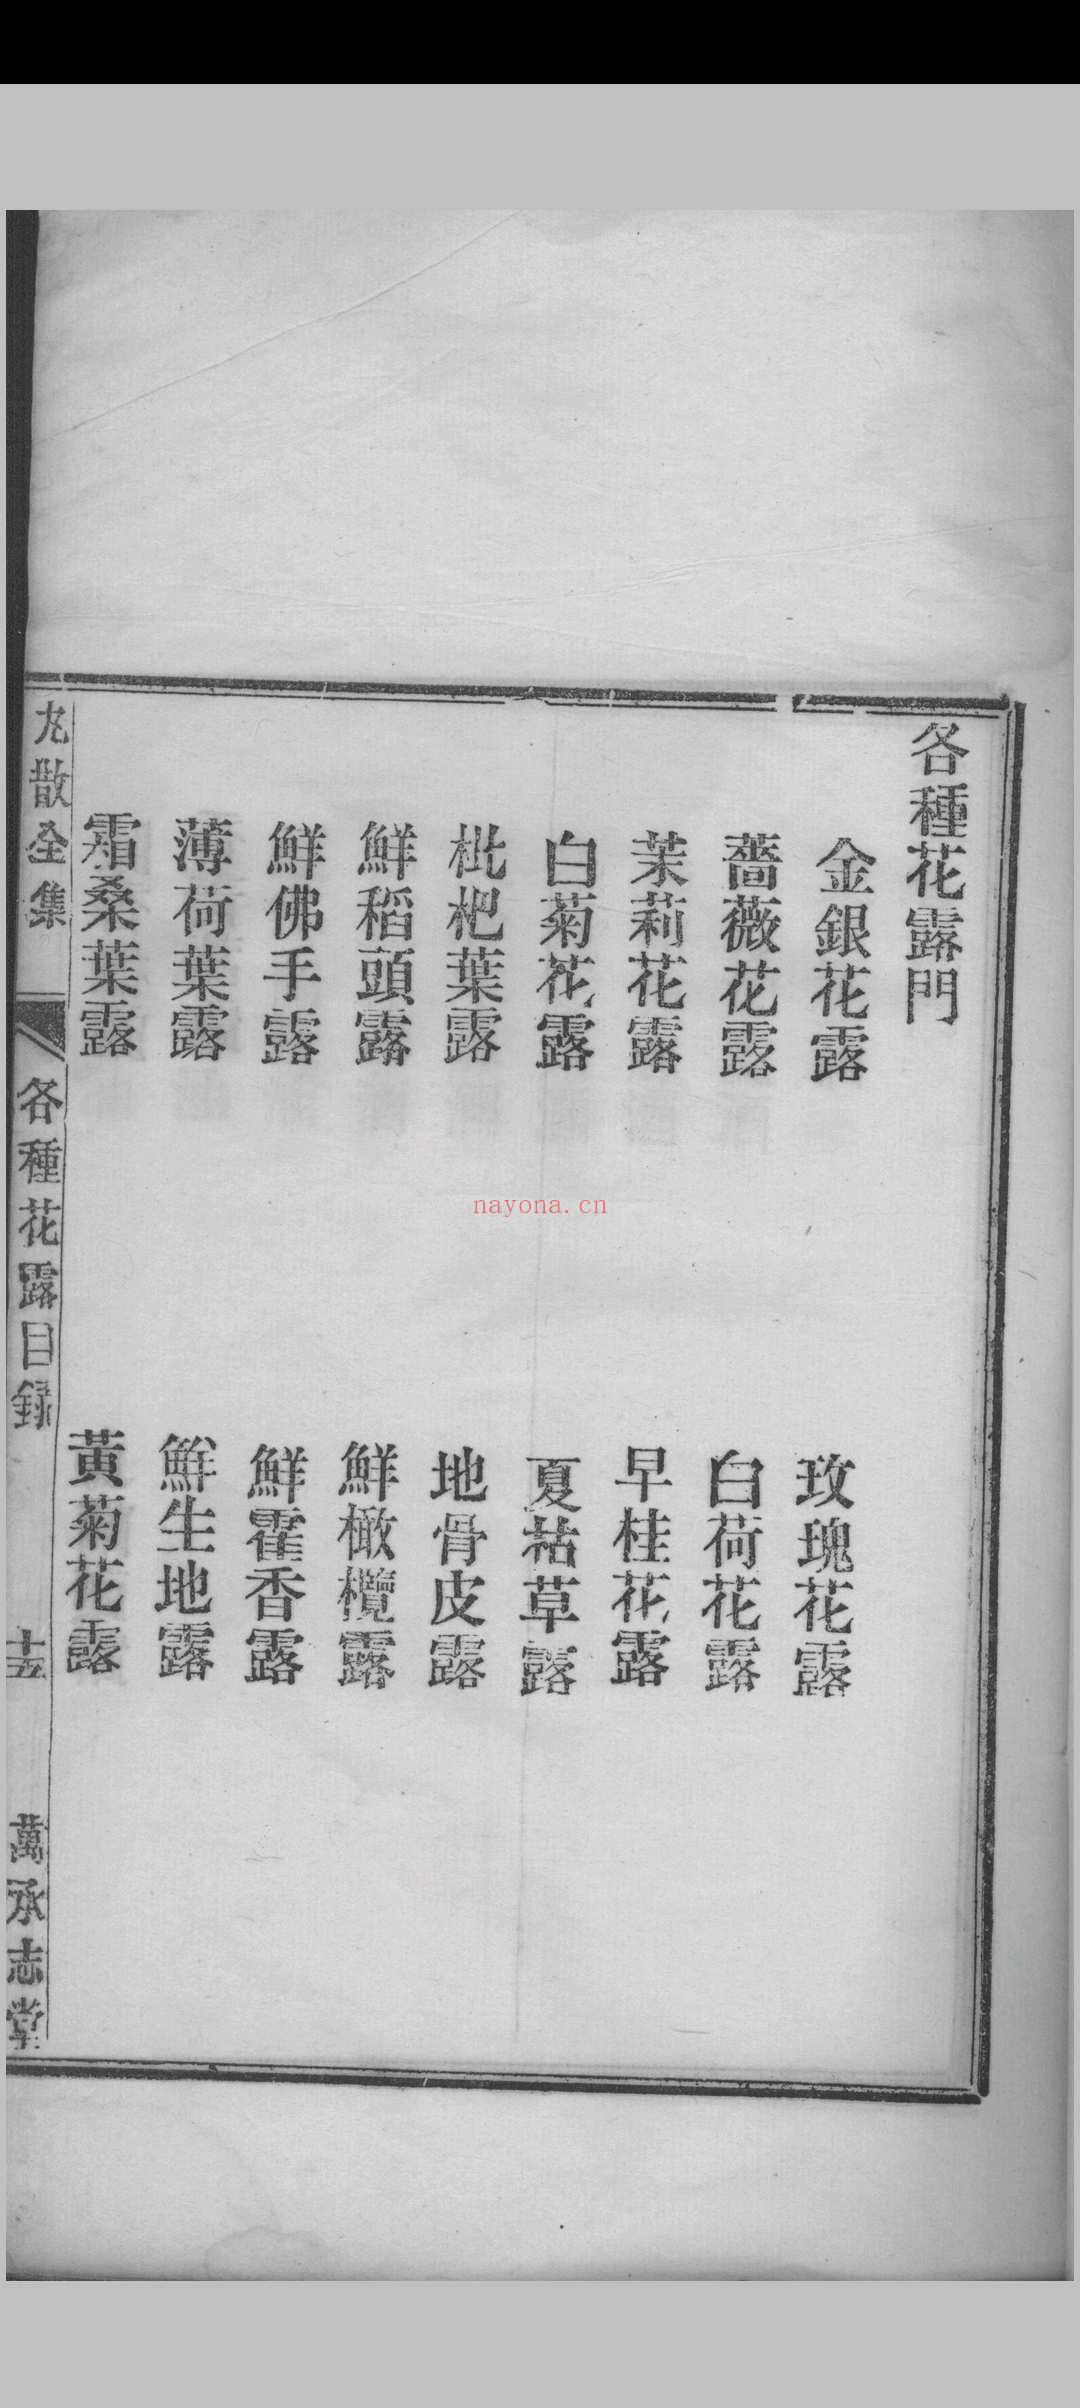 各種花露門
金銀花露
玫瑰花露
薔薇花露
白荷花露
茉莉花露
早桂花露
白菊花露
夏枯草露
枇杷葉露
地骨皮露
鮮稻頭露
鮮橄欖露
鮮佛手露
鮮霍香露
薄荷葉露
鮮生地露
霜桑葉露
黃菊花露
丸散全集
各種花露目録
十五
萬承志堂
nayona.cn